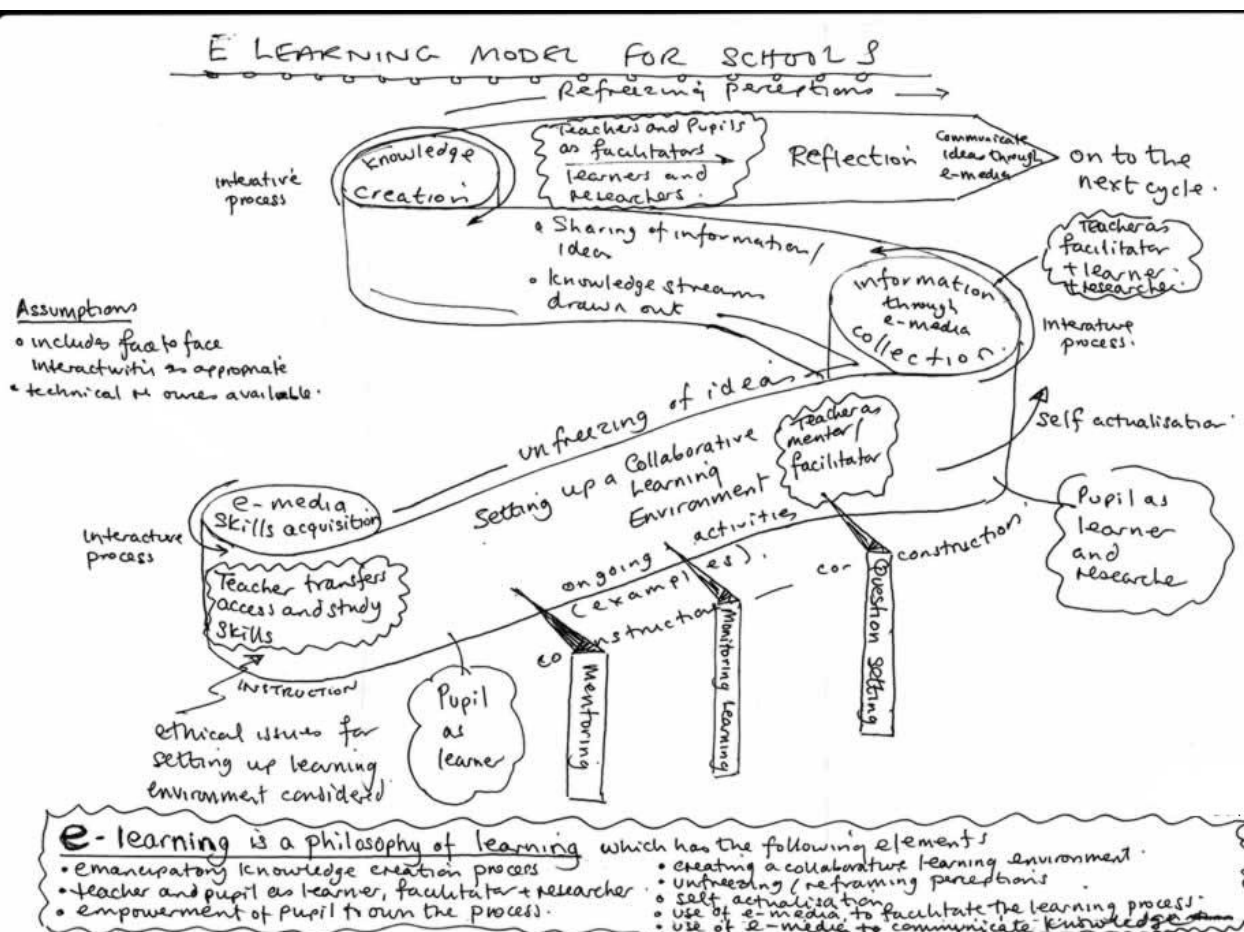 E LEARNING MODEL FOR SCHOOLS
Refreezing perceptions
Knowledge
creation
Interative
process
Teachers and Pupils
as facilitators
learners and
researchers.
Reflection
Communicate
ideas through
e-media
on to the
next cycle.
• Sharing of information/
idea
• knowledge streams
drawn out
Teacher as
facilitator
+ learner
+ researcher
information
through
e-media
collection.
Interature
process.
Assumptions
• includes face to face
interact as appropriate
• technical available.
unfreezing of ideas
Setting up a Collaborative
Learning
Environment
Teacher as
mentor/
facilitator
self actualisation
Pupil as
learner
and
researche
e-media
skills acquisition
Interacture
process
Teacher transfers
access and study
skills
ongoing activities
(examples).
co instruction — con construction.
INSTRUCTION
ethical issues for
setting up learning
environment considered
Pupil
as
learner
Mentoring
Monitoring Learning
Question Setting
e-learning is a philosophy of learning which has the following elements
• emancipatory knowledge creation process
• teacher and pupil as learner, facilitator + researcher
• empowerment of pupil to own the process.
• creating a collaborative learning environment.
• unfreezing / reframing perceptions
• self actualisation
• use of e-media, to facilitate the learning process.
• use of e-media to communicate knowledge